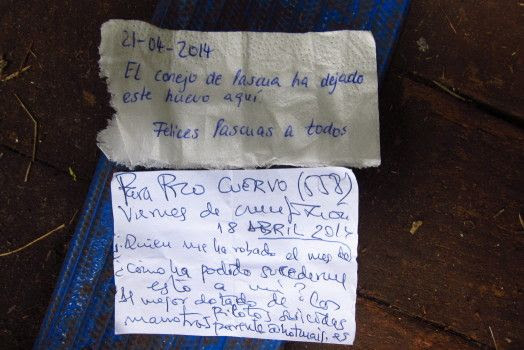 21-04-2014
El conejo de Pascua ha dejado
este huevo aquí
Felices Pascuas a todos
Para Pizo CUERVO (558)
Viernes de crucifixion
18 ABRIL 2014
¿Quien me ha robado el mes de
¿Cómo ha podido sucederme
esto a mi?
El mejor dotado de "Los
Pilotos suicidas